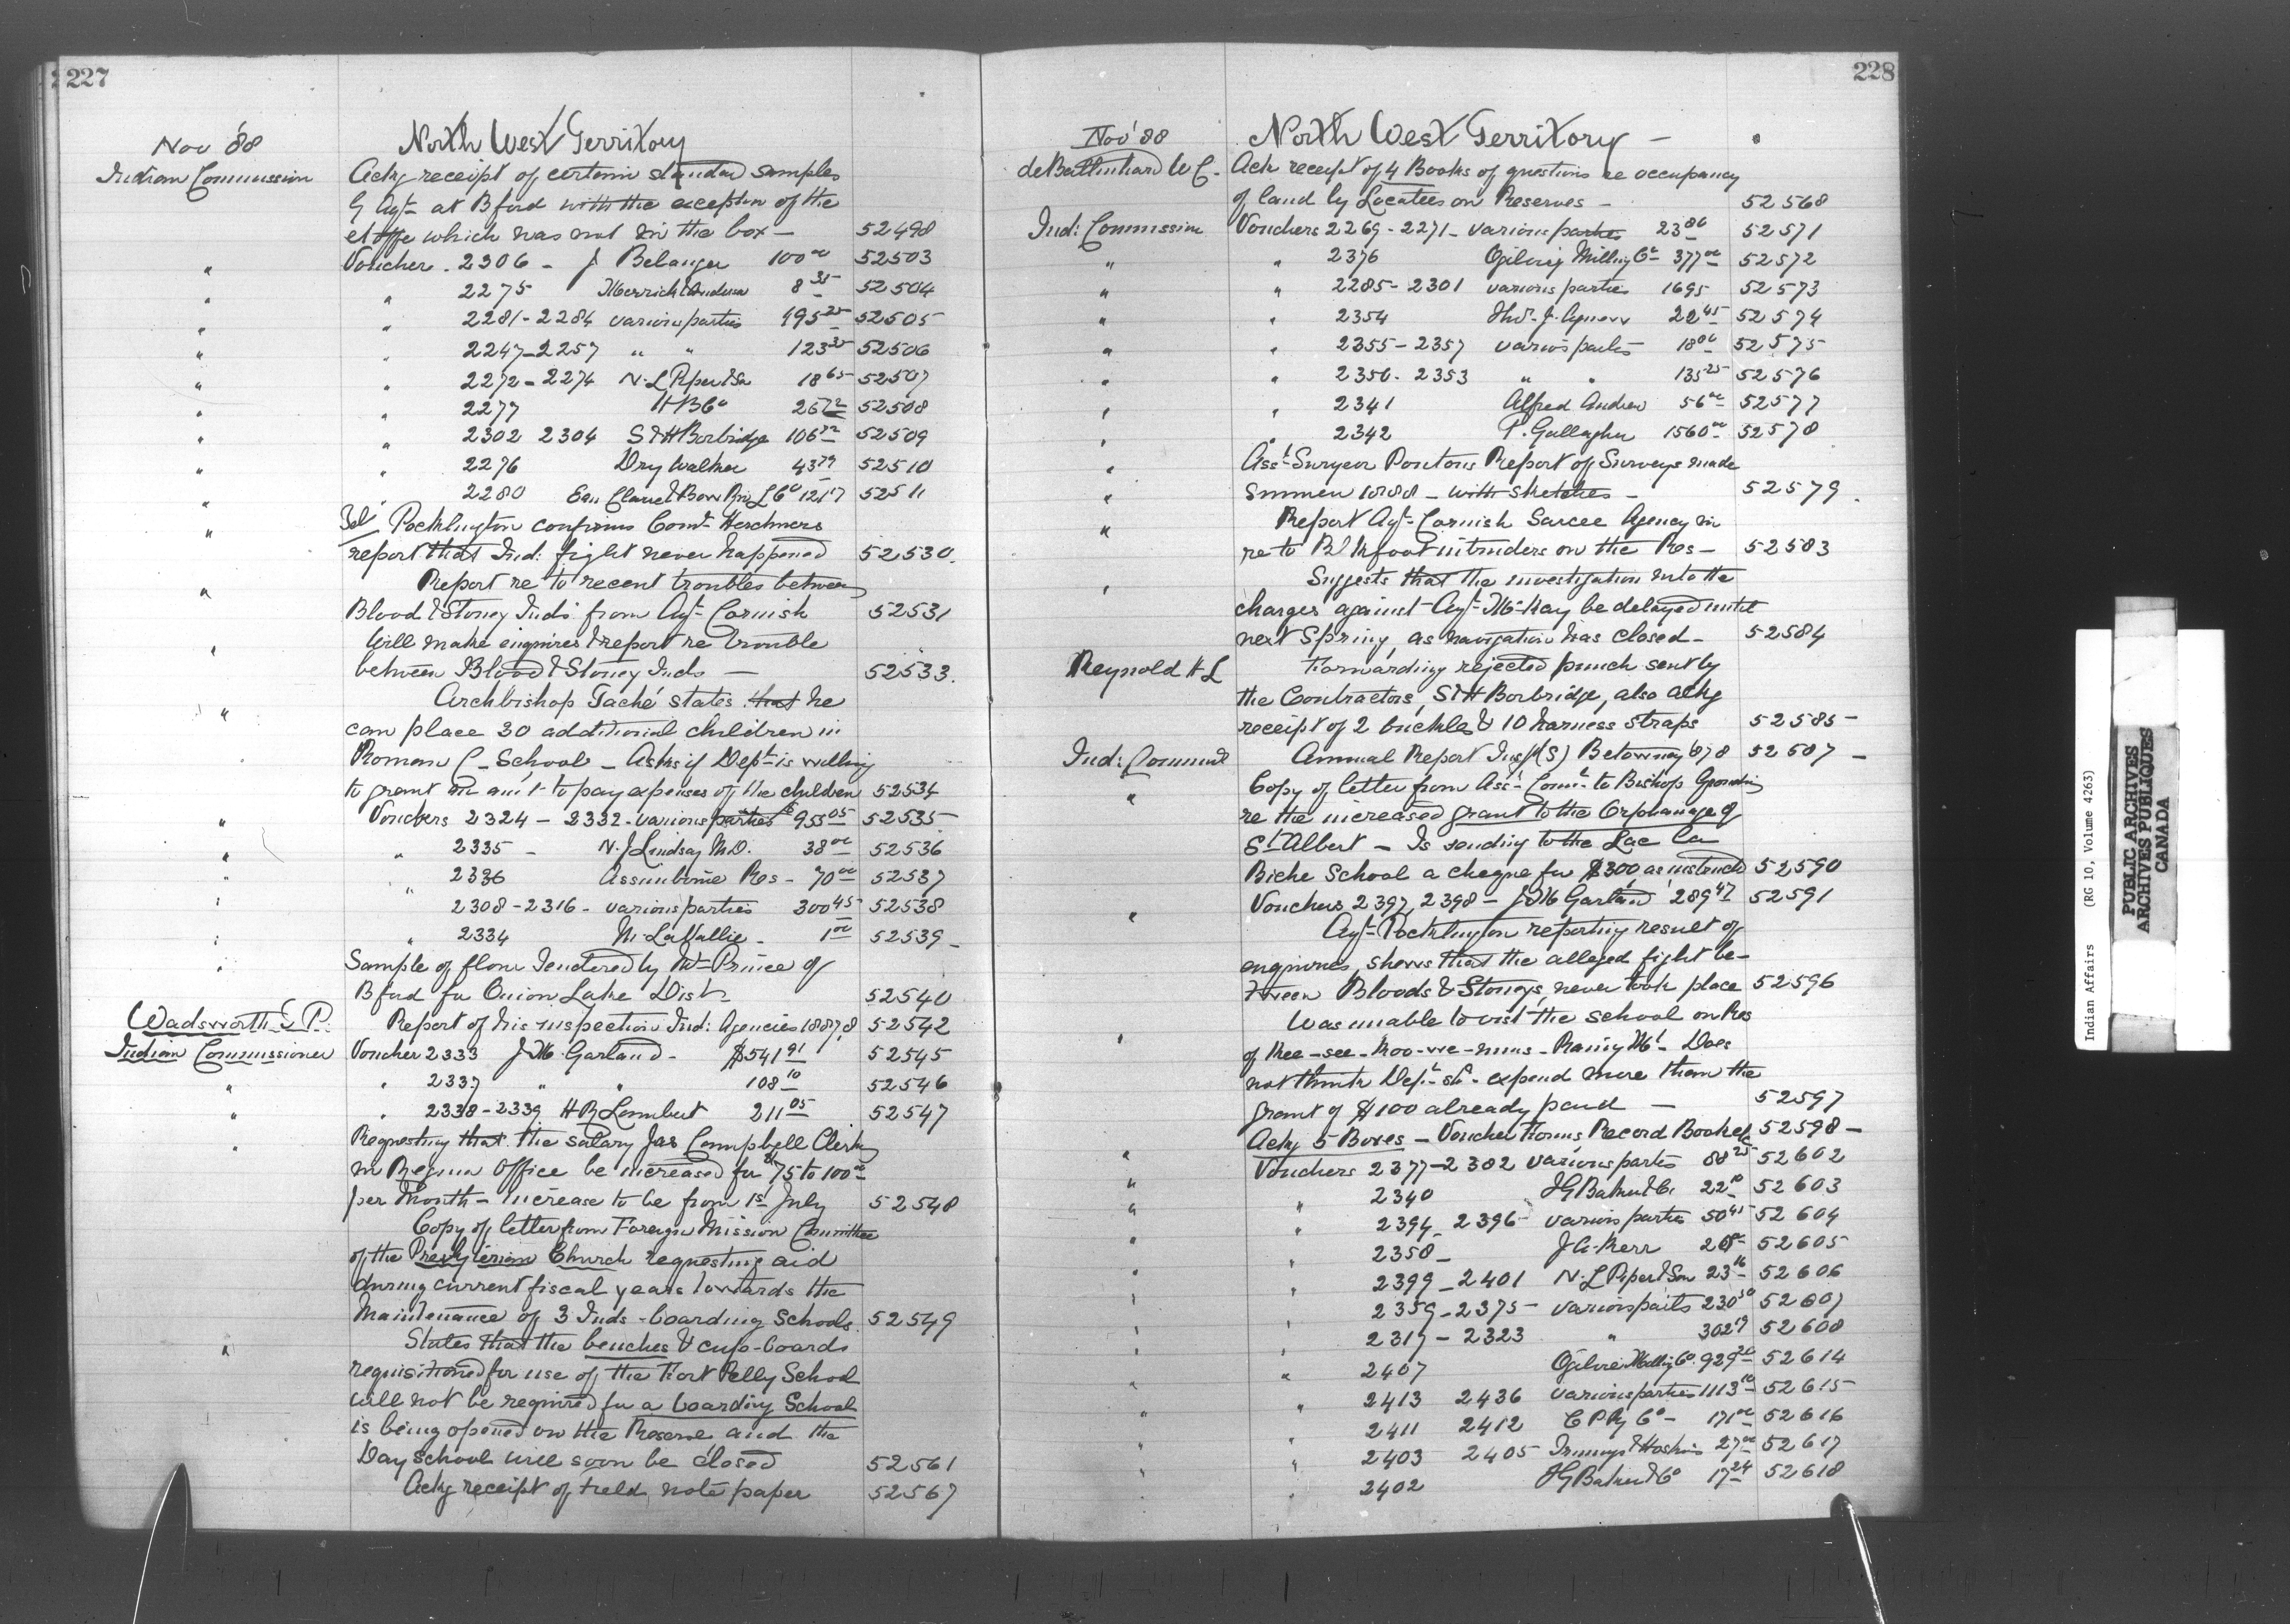 227
Nov '88 North West Territory
Indian Commission Ackg receipt of certain standard samples
G Agt at Bford with the exception of the
etoffe which was not in the box — 52498
" Voucher . 2306 - J Belanger 100 00 52503
" " 2275 Merrick Anderson 8 35 52504
" " 2281 - 2284 various parties 195 25 52505
" " 2247 - 2257 " " 123 35 52506
" " 2272 - 2274 N. L Piper & Son 18 65 52507
" " 2277 H B Co 52508
" " 2302 2304 S & H Borbridge 106 52509
" " 2276 Dry Walker 43 79 52510
" " 2280 Eau Claire & Bow Riv L Co 52511
" Pocklington confirms Comr Herchmers
report that Ind: fight never happened 52530.
" Report re to recent troubles between
Blood & Stoney Inds from Agt Cornish 52531
" Will make enquires & report re trouble
between Blood & Stoney Inds — 52533.
" Archbishop Taché states that he
can place 30 additional children in
Roman C - School - Asks if Dept is willing
to grant an am't to pay expenses of the children 52534
" Vouchers 2324 - 2332 - various parties 955 05 52535
" " 2335 - N. J Lindsay M.D. 38 00 52536
" " 2336 Assiniboine Res - 70 00 52537
" 2308 - 2316 - various parties 300 45 52538
" " 2334 M. LaVallie - 1 00 52539
" Sample of flour tendered by Mr Prince of
Bford for Onion Lake Dist 52540
Wadsworth T. P. Report of his inspection Ind: Agencies 1887,8 52542
Indian Commissioner Voucher 2333 J. M. Garland - $541 91 52545
" " 2337 " " 108 10 52546
" " 2338 - 2339 H R Lambert 211 05 52547
" Requesting that the salary Jas Campbell Clerk
in Regina Office be increased for $75 to 100 00
per Month - increase to be from 1st July 52548
Copy of letter from Foreign Mission Committee
of the Presbyterian Church requesting aid
during current fiscal years towards the
Maintenance of 3 Inds - boarding Schools 52549
" States that the benches & cup-boards
requisitioned for use of the Fort Pelly School
will not be required for a boarding School
is being opened on the Reserve and the
Day School will soon be closed 52561
Ackg receipt of note paper 52567
228
Nov '88 North West Territory —
de Ballinhard W C. Ack receipt of 4 Books of questions re occupancy
of land by Locatees on Reserves - 52568
Ind: Commission Vouchers 2269 - 2271 - various parties 23 86 52571
" " 2376 Ogilvie Milling Co 377 00 52572
" " 2285 - 2301 various parties 1695 52573
" " 2354 Thos. J. Agnew 22 45 52574
" " 2355 - 2357 various parties 18 00 52575
" " 2350 - 2353 " " 135 25 52576
" " 2341 Alfred Andrew 56 00 52577
" " 2342 P. Gallagher 1560 00 52578
" Asst Surveyor Pontons Report of Surveys made
" Summer 1888 - with sketches - 52579.
" Report Agt Cornish Sarcee Agency in
re to Blkfoot intruders on the Res - 52583
" Suggests that the investigation into the
charges against Agt McKay be delayed until
next Spring, as navigation has closed - 52584
Reynold H L Forwarding rejected punch sent by
the Contractors, S & H Borbridge, also ackg
receipt of 2 buckles & 10 harness straps 52585 -
Ind: Commn Annual Report Insp (S) Betournay 87 8 52587 -
" Copy of letter from Asst Comr to Bishop Grandin
re the increased grant to the Orphanage of
St Albert - Is sending to the Lac La
Biche School a cheque for $300 as instructed 52590
" Vouchers 2397, 2398 - J. M Garland 289 47 52591
Agt Pocklington reporting result of
enquires, shews that the alleged fight be-
tween Bloods & Stoneys, never took place 52596
" Was unable to visit the school on Res
of Kee-see-koo-we-nins - Raising Mt - Does
not think Dept shd expend more than the
grant of $100 already paid — 52597
Ackg 5 Boxes - Voucher Forms Record Book etc 52598 -
" Vouchers 2377 - 2382 various parties 88 25 52602
" " 2340 I G Baker & Co 22 10 52603
" " 2394 2396 - various parties 50 45 52604
" " 2358 - J. A. Kerr 52605
" " 2399 - 2401 N. L Piper & Son 23 16 52606
" " 2359 - 2375 - various parties 230 50 52607
" " 2317 - 2323 " 302 19 52608
" " 2407 Ogilvie Milling Co. 929 20 52614
" " 2413 2436 various parties 1113 10 52615
" " 2411 2412 C P Ry Co - 171 00 52616
" " 2403 2405 27 00 52617
" " 2402 I G Baker & Co 17 24 52618
Indian Affairs (RG 10, Volume 4263)
PUBLIC ARCHIVES
ARCHIVES PUBLIQUES
CANADA